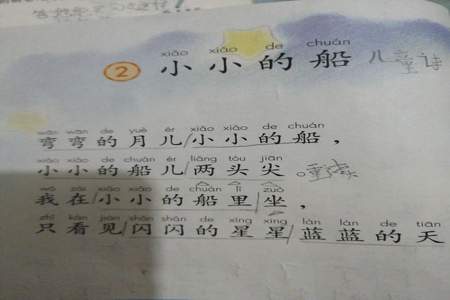 xiǎo xiǎo de chuán
② 小小的船 儿童诗
wān wān de yuè ér xiǎo xiǎo de chuán
弯弯的月儿/小小的船，
xiǎo xiǎo de chuán ér liǎng tóu jiān
小小的船儿/两头尖。
wǒ zài xiǎo xiǎo de chuán lǐ zuò
我在/小小的船里/坐，
zhǐ kàn jiàn shǎn shǎn de xīng xing lán lán de tiān
只看见/闪闪的星星/蓝蓝的天